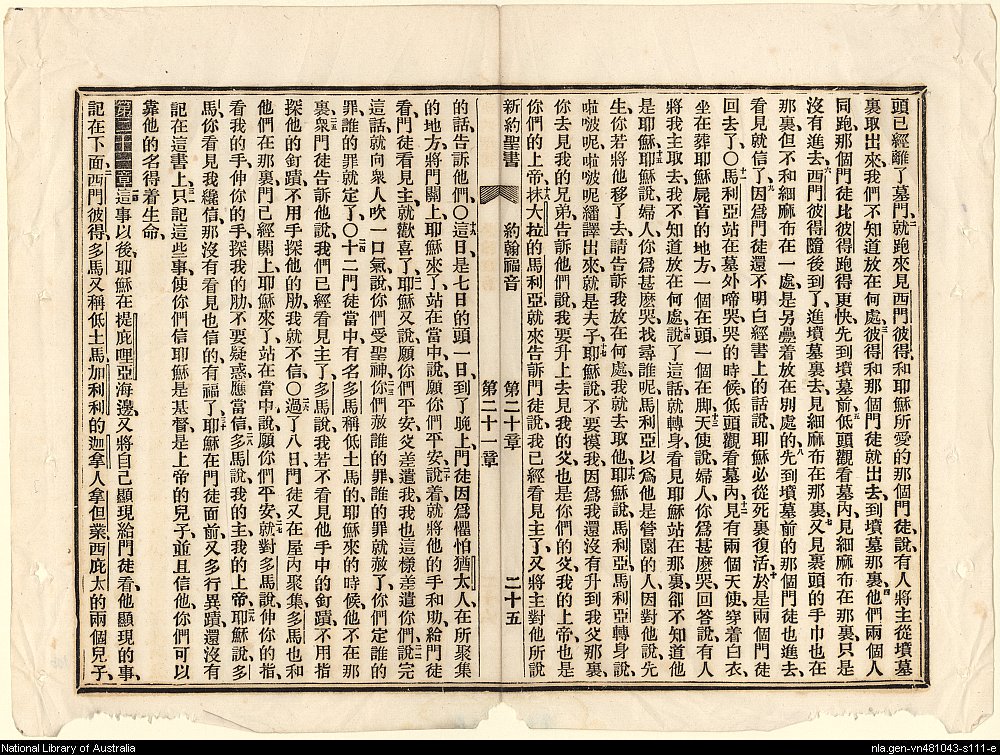 頭已經離了墓門就跑來見西門彼得和耶穌所愛的那個門徒說有人將主從墳墓
裏取出來我們不知道放在何處彼得和那個門徒就出去到墳墓那裏他們兩個人
同跑那個門徒比彼得跑得更快先到墳墓前低頭觀看墓內見細麻布在那裏只是
沒有進去西門彼得隨後到了進墳墓裏去見細麻布在那裏又見裹頭的手巾也在
那裏但不和細麻布在一處是另疊着放在別處的先到墳墓前的那個門徒也進去
看見就信了因爲門徒還不明白經書上的話說耶穌必從死裏復活於是兩個門徒
回去了〇馬利亞站在墓外啼哭哭的時候低頭觀看墓內見有兩個天使穿着白衣
坐在葬耶穌屍首的地方一個在頭一個在脚天使說婦人你爲甚麼哭回答說有人
將我主取去我不知道放在何處說了這話就轉身看見耶穌站在那裏卻不知道他
是耶穌耶穌說婦人你爲甚麼哭找尋誰呢馬利亞以爲他是管園的人因對他說先
生你若將他移了去請告訴我放在何處我就去取他耶穌說馬利亞馬利亞轉身說
啦啵呢啦啵呢繙譯出來就是夫子耶穌說不要摸我因爲我還沒有升到我父那裏
你去見我的兄弟告訴他們說我要升上去見我的父也是你們的父我的上帝也是
你們的上帝抹大拉的馬利亞就來告訴門徒說我已經看見主了又將主對他所說
新約聖書 約翰福音 第二十章 二十五
第二十一章
的話告訴他們〇這日是七日的頭一日到了晚上門徒因爲懼怕猶太人在所聚集
的地方將門關上耶穌來了站在當中說願你們平安說着就將他的手和肋給門徒
看門徒看見主就歡喜了耶穌又說願你們平安父差遣我我也這樣差遣你們說完
這話就向衆人吹一口氣說你們受聖神你們赦誰的罪誰的罪就赦了你們定誰的
罪誰的罪就定了〇十二門徒當中有名多馬稱低土馬的耶穌來的時候他不在那
裏衆門徒告訴他說我們已經看見主了多馬說我若不看見他手中的釘蹟不用指
探他的釘蹟不用手探他的肋我就不信〇過了八日門徒又在屋內聚集多馬也和
他們在那裏門已經關上耶穌來了站在當中說願你們平安就對多馬說伸你的指
看我的手伸你的手探我的肋不要疑惑應當信多馬說我的主我的上帝耶穌說多
馬你看見我纔信那沒有看見也信的有福了耶穌在門徒面前又多行異蹟還沒有
記在這書上只記這些事使你們信耶穌是基督是上帝的兒子並且信他你們可以
靠他的名得着生命
第二十一章這事以後耶穌在提庇哩亞海邊又將自己顯現給門徒看他顯現的事
記在下面西門彼得多馬又稱低土馬加利利的迦拿人拿但業西庇太的兩個兒子
National Library of Australia
nla.gen-vn481043-s111-e